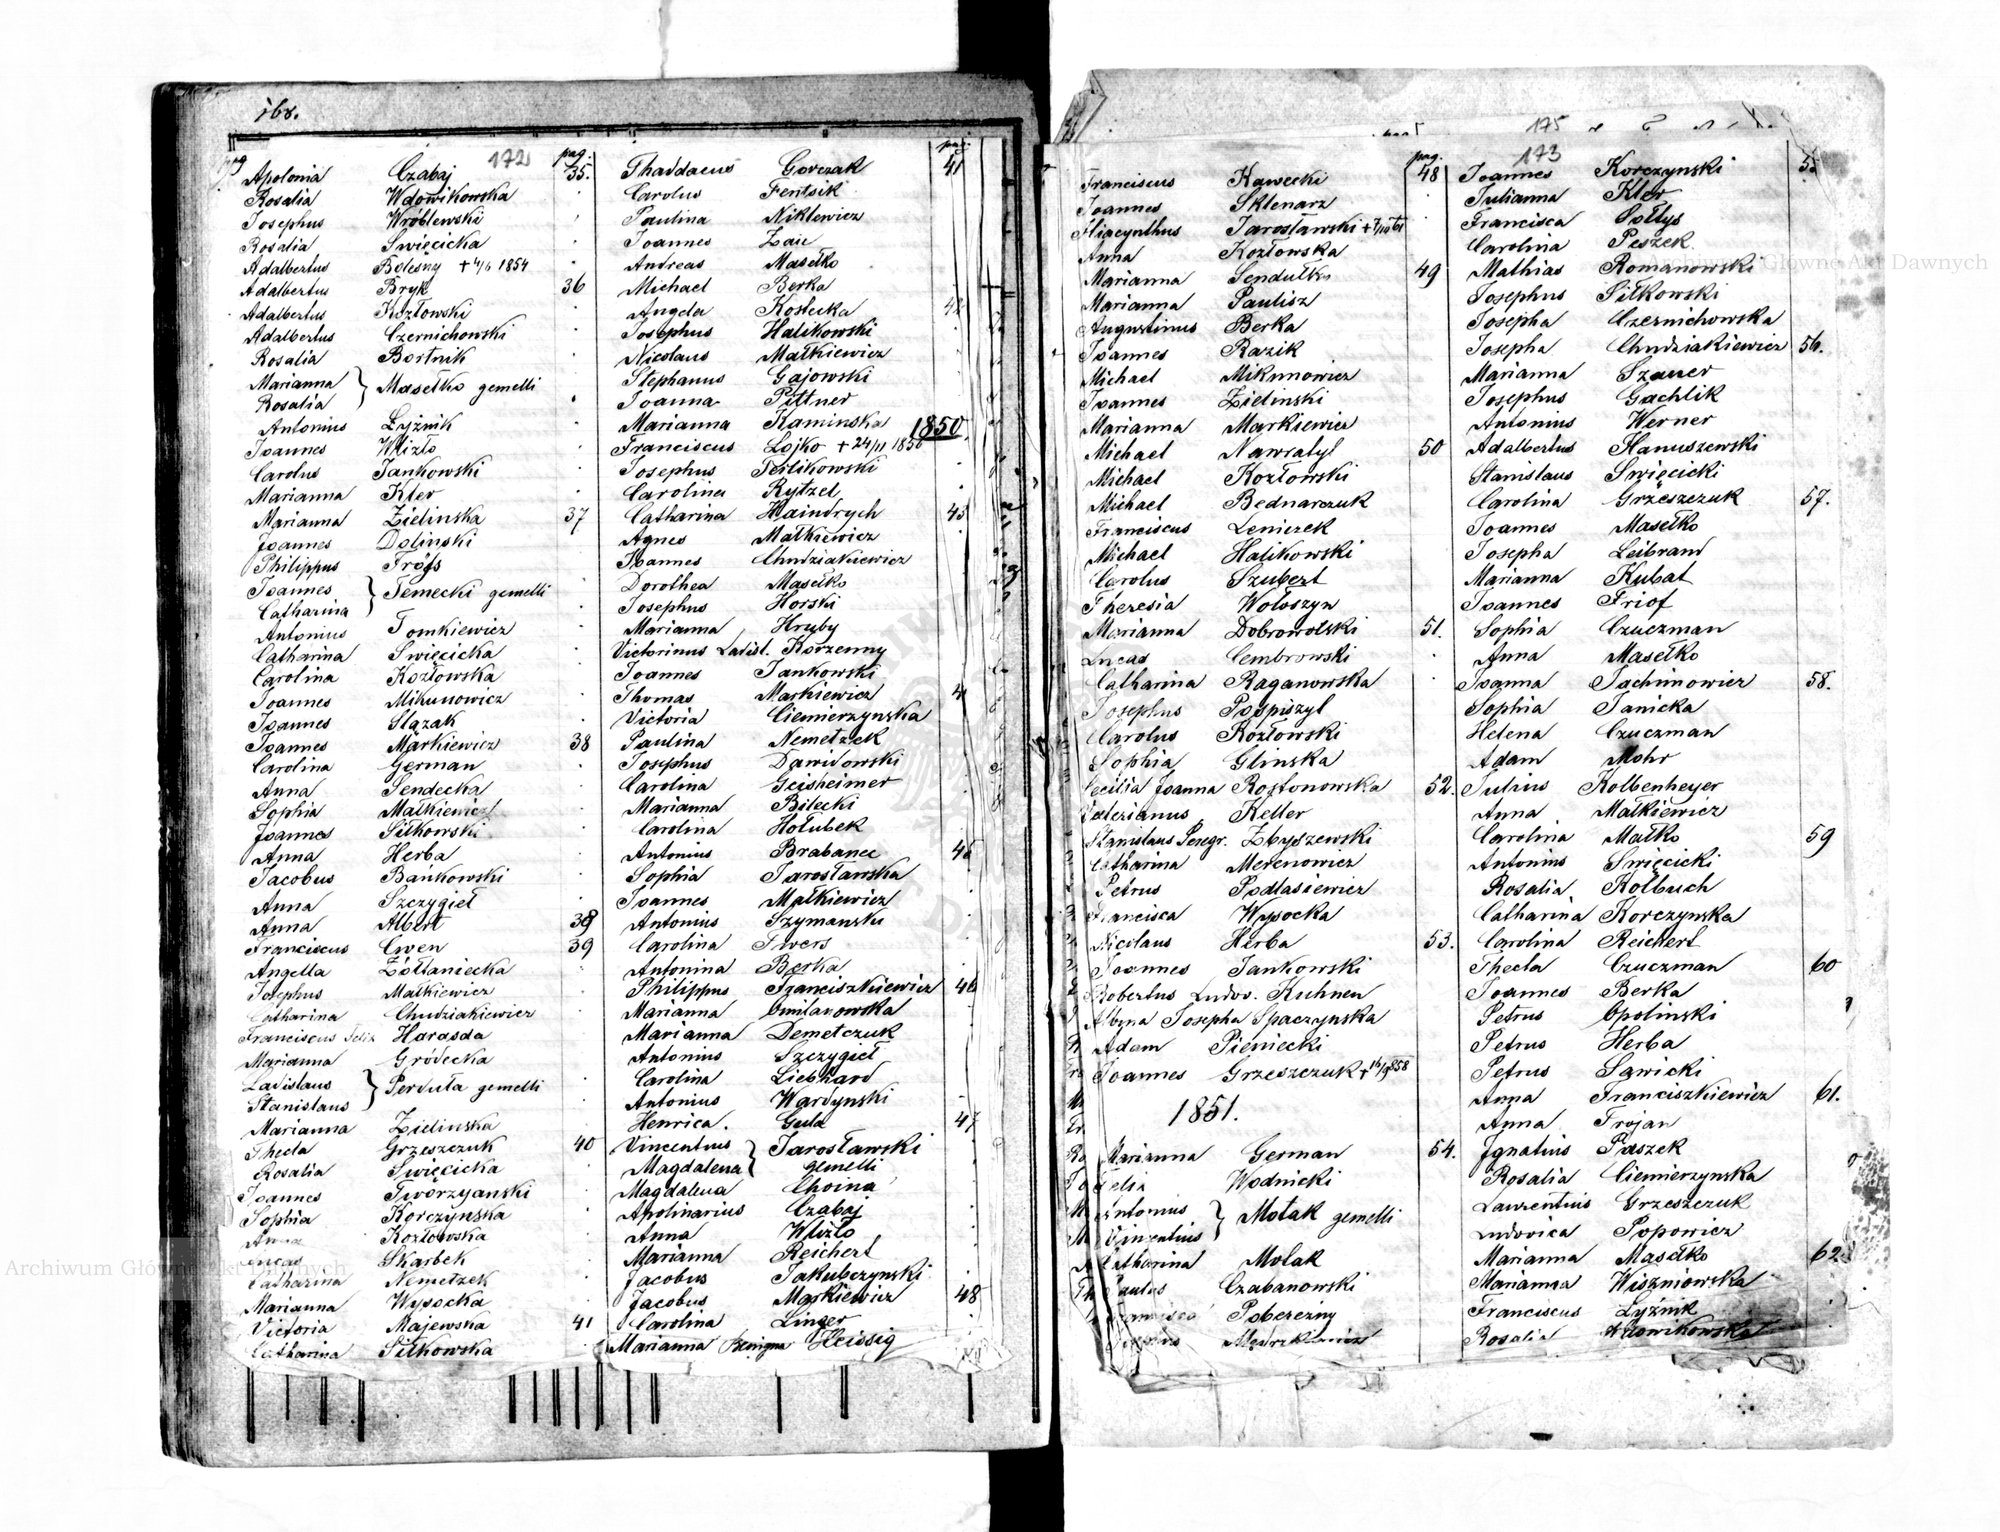 168.
172
pag.
Apolonia Czabaj 35.
Rosalia Wdowikowska
Josephus Wróblewski
Rosalia Święcicka
Adalbertus Bolesny + 4/6 1854
Adalbertus Bryk 36
Adalbertus Kozłowski
Adalbertus Czernichowski
Rosalia Bortnik
Marianna } Masełko gemelli
Rosalia
Antonius Łyżnik
Joannes Wlizło
Carolus Jankowski
Marianna Kler
Marianna Zielinska 37
Joannes Dolinski
Philippus Tröfs
Joannes } Temecki gemelli
Catharina
Antonius Tomkiewicz
Catharina Święcicka
Carolina Kozłowska
Joannes Mikunowicz
Joannes Slązak
Joannes Markiewicz 38
Carolina German
Anna Sendecka
Sophia Małkiewicz
Joannes Siłkowski
Anna Herba
Jacobus Bankowski
Anna Szczygieł
Anna Albert 38
Franciscus Cwen 39
Angella Żółtaniecka
Josephus Małkiewicz
Catharina Chudziakiewicz
Franciscus Felix Harasda
Marianna Grodecka
Ladislaus } Perduła gemelli
Stanislaus
Marianna Zielinska
Thecla Grzeszczuk 40
Rosalia Święcicka
Joannes Tworzyanski
Sophia Korczynska
Anna Kozłowska
Lucas Skarbek
Catharina Nemetzek
Marianna Wysocka
Victoria Majewska 41
Catharina Siłkowska
pag.
Thaddaeus Gorczak 41
Carolus Fentsik
Paulina Niklewicz
Joannes Zaic
Andreas Masełko
Michael Berka
Angela Kostecka 42
Josephus Halikowski
Nicolaus Małkiewicz
Stephanus Gajowski
Joanna Pittner
Marianna Kaminska
1850.
Franciscus Lojko + 24/11 1850
Josephus Terlikowski
Carolina Rytzel
Catharina Haindrych 43
Agnes Małkiewicz
Joannes Chudziakiewicz
Dorothea Masełko
Josephus Horski
Marianna Hruby
Victorinus Ladisl. Korzenny
Joannes Jankowski
Thomas Markiewicz
Victoria Ciemierzynska
Paulina Nemetzek
Josephus Dawidowski
Carolina Geisheimer
Marianna Bilecki
Carolina Hołubek
Antonius Brabanec 45
Sophia Jarosławska
Joannes Małkiewicz
Antonius Szymanski
Carolina Twers
Antonina Berka
Philippus Franciszkiewicz 46
Marianna Cmilanowska
Marianna Demetczuk
Antonius Szczygieł
Carolina Liebhard
Antonius Wardynski
Henrica. Gula 47
Vincentius } Jarosławski
Magdalena gemelli
Magdalena Choina
Apolinarius Czabaj
Anna Wlizło
Marianna Reichert
Jacobus Jakubczynski
Jacobus Markiewicz 48
Carolina Linger
Marianna Benigna Heissig
175
173
pag.
Franciscus Kawecki 48
Joannes Sklenarz
Hiacynthus Jarosławski
Anna Kozłowska
Marianna Sendułko 49
Marianna Paulisz
Augustinus Berka
Joannes Razik
Michael Mikunowicz
Joannes Zielinski
Marianna Markiewicz
Michael Nawratyl 50
Michael Kozłowski
Michael Bednarczuk
Franciscus Leniczek
Michael Halikowski
Carolus Szubert
Theresia Wołoszyn
Marianna Dobrowolski 51.
Lucas Cembrowski
Catharina Raganowska
Josephus Pospiszyl
Carolus Kozłowski
Sophia Glinska
Cecilia Joanna Rostonowska 52.
Valerianus Keller
Stanislaus Peregr. Zbyszewski
Catharina Merenowicz
Petrus Podlasiewicz
Francisca Wysocka
Nicolaus Herba 53.
Joannes Jankowski
Robertus Ludov. Kuhnen
Albina Josepha Spaczynska
Adam Pieniecki
Joannes Grzeszczuk
1851.
Marianna German 54.
Felix Wodnicki
Antonius } Motak gemelli
Vincentius
Catharina Motak
Paulus Czabanowski
Francisca Pobereżny
Josephus
Joannes Korczynski 55
Julianna Kler
Francisca Sołtys
Carolina Peszek
Mathias Romanowski
Josephus Siłkowski
Josepha Czernichowska
Josepha Chudziakiewicz 56.
Marianna Szauer
Josephus Gachlik
Antonius Werner
Adalbertus Hanuszewski
Stanislaus Święcicki
Carolina Grzeszczuk 57.
Joannes Masełko
Josepha Leibrand
Marianna Kubat
Joannes Friof
Sophia Czuczman
Anna Masełko
Joanna Jachimowicz 58.
Sophia Janicka
Helena Czuczman
Adam Mohr
Julius Kolbenheyer
Anna Małkiewicz
Carolina Małko 59
Antonius Święcicki
Rosalia Kolbuch
Catharina Korczynska
Carolina Reichert
Thecla Czuczman 60
Joannes Berka
Petrus Opolinski
Petrus Herba
Petrus Sawicki
Anna Franciszkiewicz 61.
Anna Trojan
Ignatius Paszek
Rosalia Ciemierzynska
Laurentius Grzeszczuk
Ludovica Popowicz
Marianna Masełko 62
Marianna Wiszniowska
Franciscus Łyżnik
Rosalia Wdowikowska
Archiwum Główne Akt Dawnych
Archiwum Główne Akt Dawnych